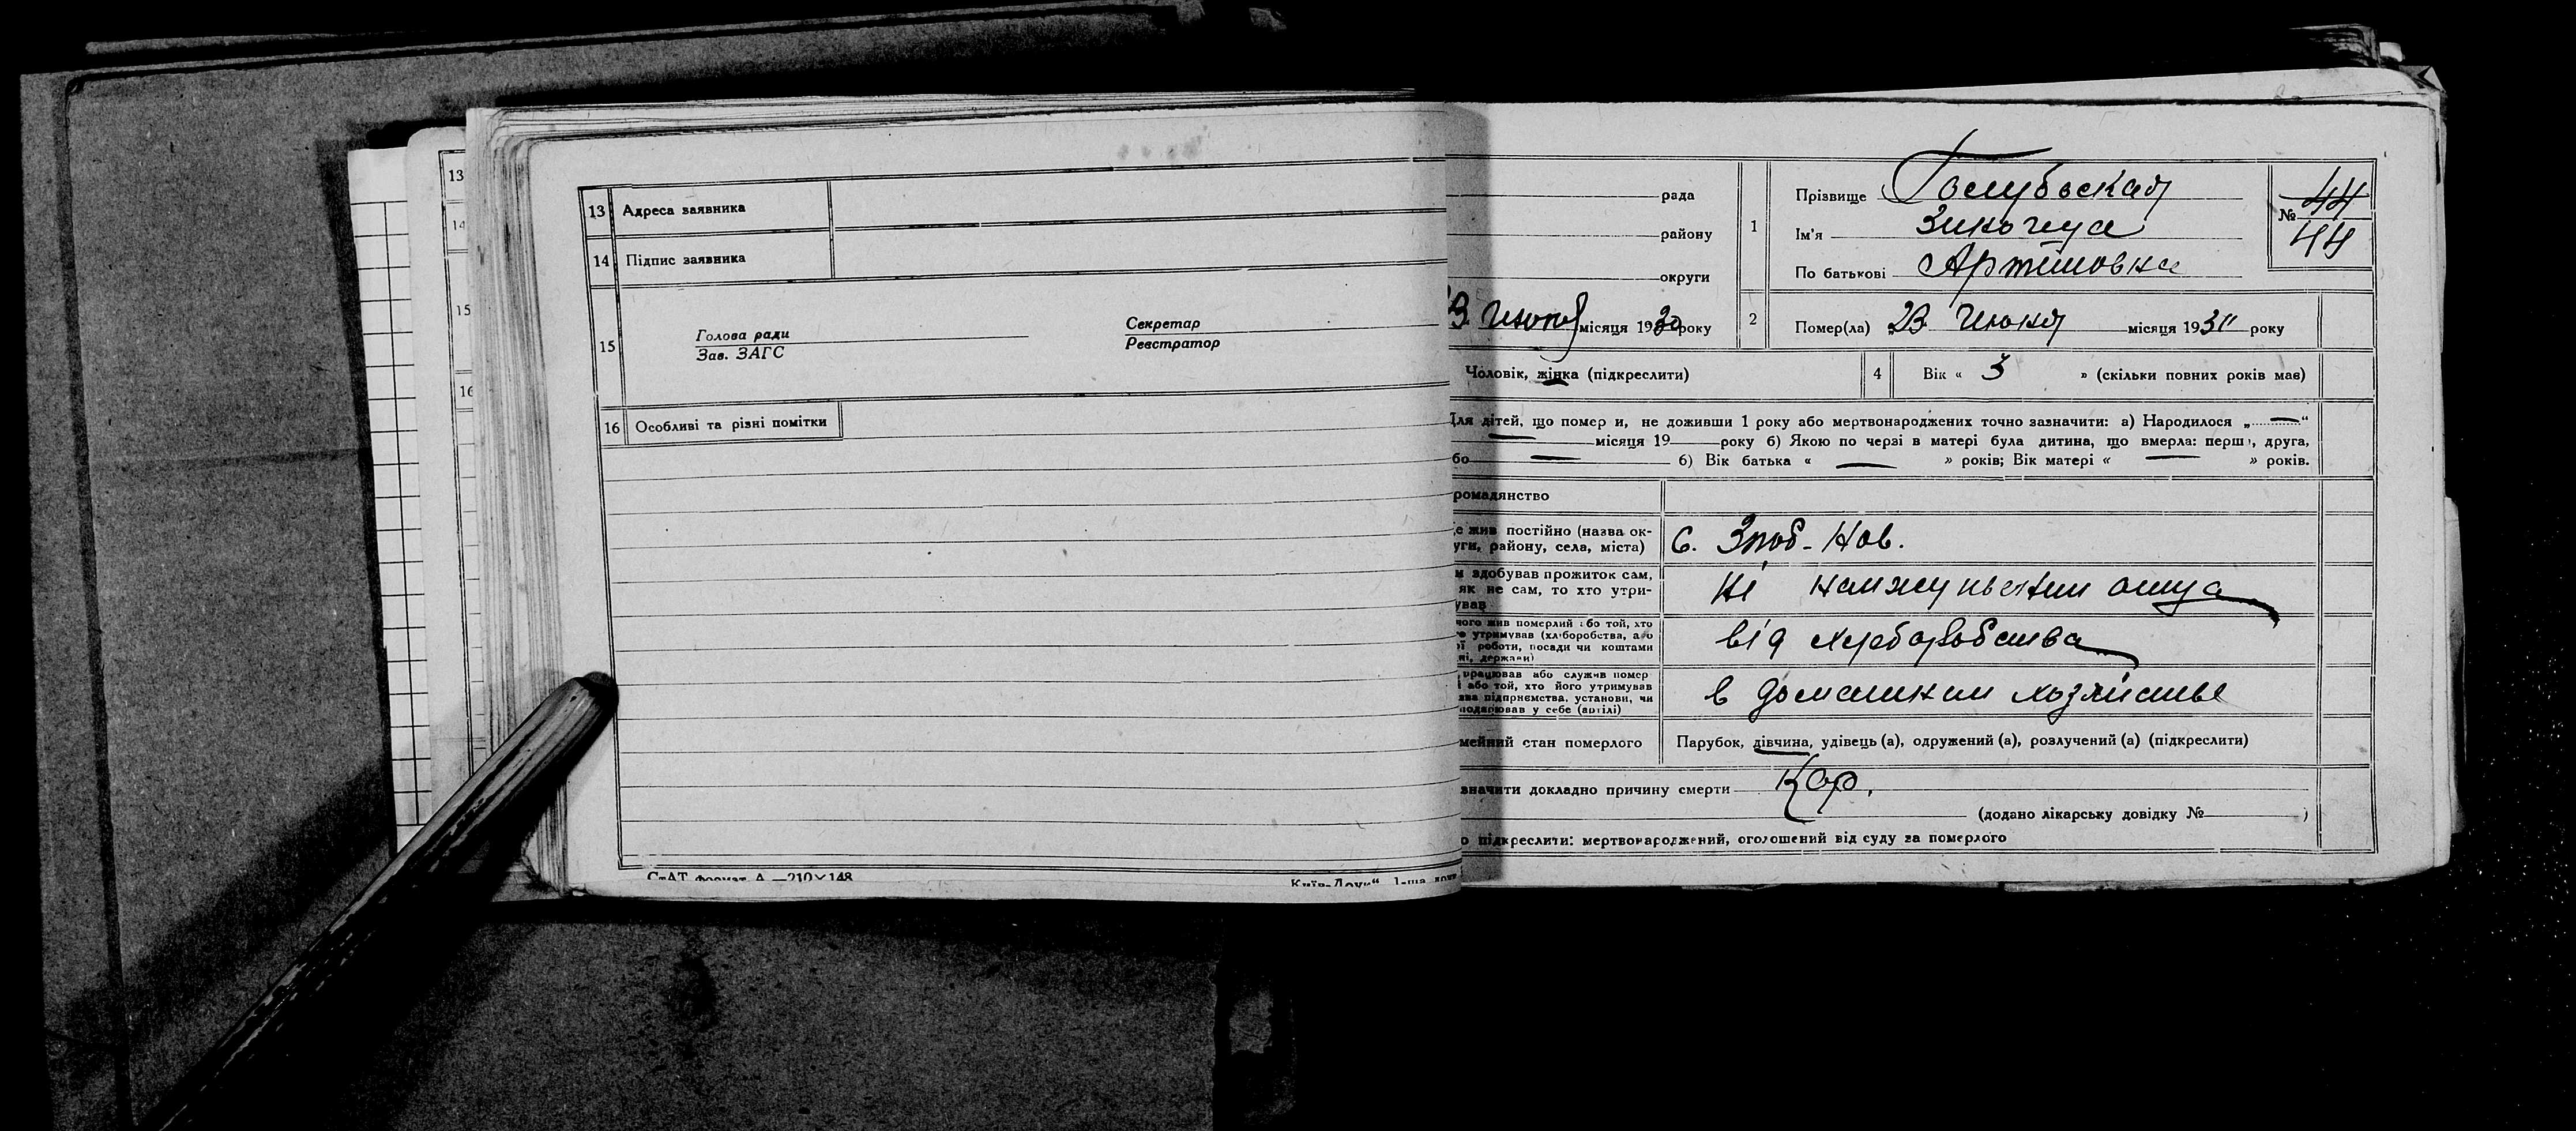 13
14
15
16
13 Адреса заявника
14 Підпис заявника
15
Голова ради
Зав. ЗАГС
Секретар
Реєстратор
16 Особливі та різні помітки
СтАТ формат А —210×148
рада
району
округи
місяця 1930 року
1
Прізвище Голубовская
Ім'я
По батькові Артемовна
№ 44
44
2 Помер(ла) 23 Июня місяця 1930 року
Чоловік, жінка (підкреслити)
4 Вік « 3 » (скільки повних років мав)
Для дітей, що померли, не доживши 1 року або мертвонароджених точно зазначити: а) Народилося „ — “
— місяця 19 року б) Якою по черзі в матері була дитина, що вмерла: перша, друга,
або — б) Вік батька « — » років; Вік матері « — » років.
громадянство
де жив постійно (назва ок-
руги, району, села, міста) с. Зноб-Нов.
здобував прожиток сам,
як не сам, то хто утри-
мував
чого жив померлий або той, хто
його утримував (хліборобства, або
роботи, посади чи коштами
держави)
від хлеборобства
працював або служив помер
або той, хто його утримував
назва підприємства, установи, чи
господарював у себе (артілі)
в домашнем хозяйстве
мейний стан померлого Парубок, дівчина, удівець (а), одружений (а), розлучений (а) (підкреслити)
значити докладно причину смерти Кор.
(додано лікарську довідку № )
підкреслити: мертвонароджений, оголошений від суду за померлого